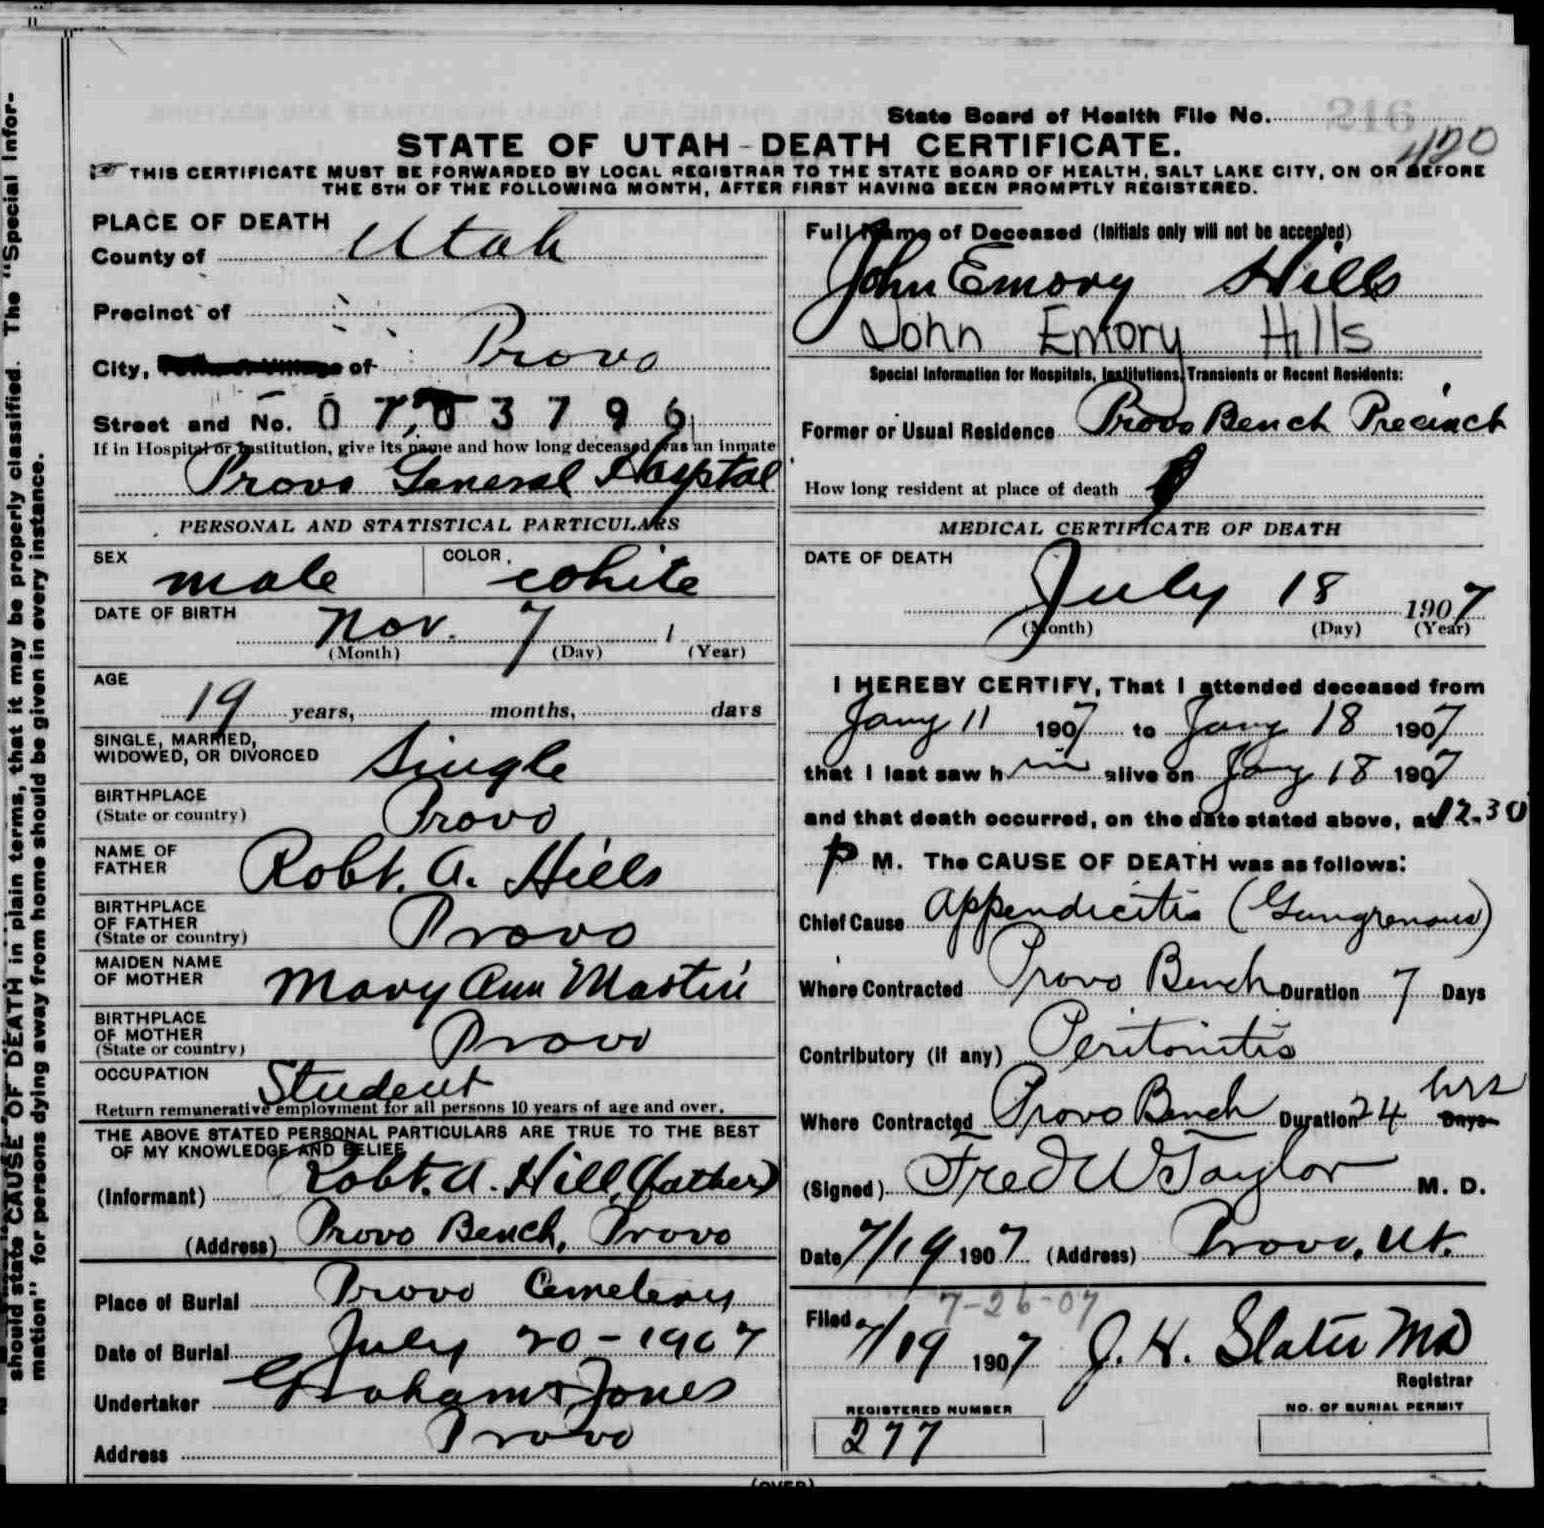 should state CAUSE OF DEATH in plain terms, that it may be properly classified. The "Special Infor-
mation" for persons dying away from home should be given in every instance.
State Board of Health File No.
216
420
STATE OF UTAH - DEATH CERTIFICATE.
THIS CERTIFICATE MUST BE FORWARDED BY LOCAL REGISTRAR TO THE STATE BOARD OF HEALTH, SALT LAKE CITY, ON OR BEFORE
THE 5TH OF THE FOLLOWING MONTH, AFTER FIRST HAVING BEEN PROMPTLY REGISTERED.
PLACE OF DEATH
County of Utah
Precinct of
City, of Provo
Street and No. 0 7, 0 3 7 9 6
If in Hospital or Institution, give its name and how long deceased was an inmate
Provo General Hospital
PERSONAL AND STATISTICAL PARTICULARS
SEX male COLOR white
DATE OF BIRTH Nov. 7 1
(Month) (Day) (Year)
AGE
19 years, months, days
SINGLE, MARRIED,
WIDOWED, OR DIVORCED Single
BIRTHPLACE
(State or country) Provo
NAME OF
FATHER Robt. A. Hills
BIRTHPLACE
OF FATHER
(State or country) Provo
MAIDEN NAME
OF MOTHER Mary Ann Martin
BIRTHPLACE
OF MOTHER
(State or country) Provo
OCCUPATION Student
Return remunerative employment for all persons 10 years of age and over.
THE ABOVE STATED PERSONAL PARTICULARS ARE TRUE TO THE BEST
OF MY KNOWLEDGE AND BELIEF
(Informant) Robt. A. Hill, (father)
(Address) Provo Bench, Provo
Place of Burial Provo Cemetery
Date of Burial July 20 - 1907
Undertaker Graham & Jones
Address Provo
Full Name of Deceased (Initials only will not be accepted)
John Emory Hills
John Emory Hills
Special Information for Hospitals, Institutions, Transients or Recent Residents:
Former or Usual Residence Provo Bench Precinct
How long resident at place of death
MEDICAL CERTIFICATE OF DEATH
DATE OF DEATH
July 18 1907
(Month) (Day) (Year)
I HEREBY CERTIFY, That I attended deceased from
Jany 11 1907 to Jany 18 1907
that I last saw him alive on Jany 18 1907
and that death occurred, on the date stated above, at 12.30
P M. The CAUSE OF DEATH was as follows:
Chief Cause Appendicitis (Gangrenous)
Where Contracted Provo Bench Duration 7 Days
Contributory (if any) Peritonitis
Where Contracted Provo Bench Duration 24 Days hrs
(Signed) Fred W Taylor M. D.
Date 7/19 1907 (Address) Provo, Ut.
7-26-07
Filed 7/19 1907 J. H. Slater MD
Registrar
REGISTERED NUMBER
277
NO. OF BURIAL PERMIT
(OVER)